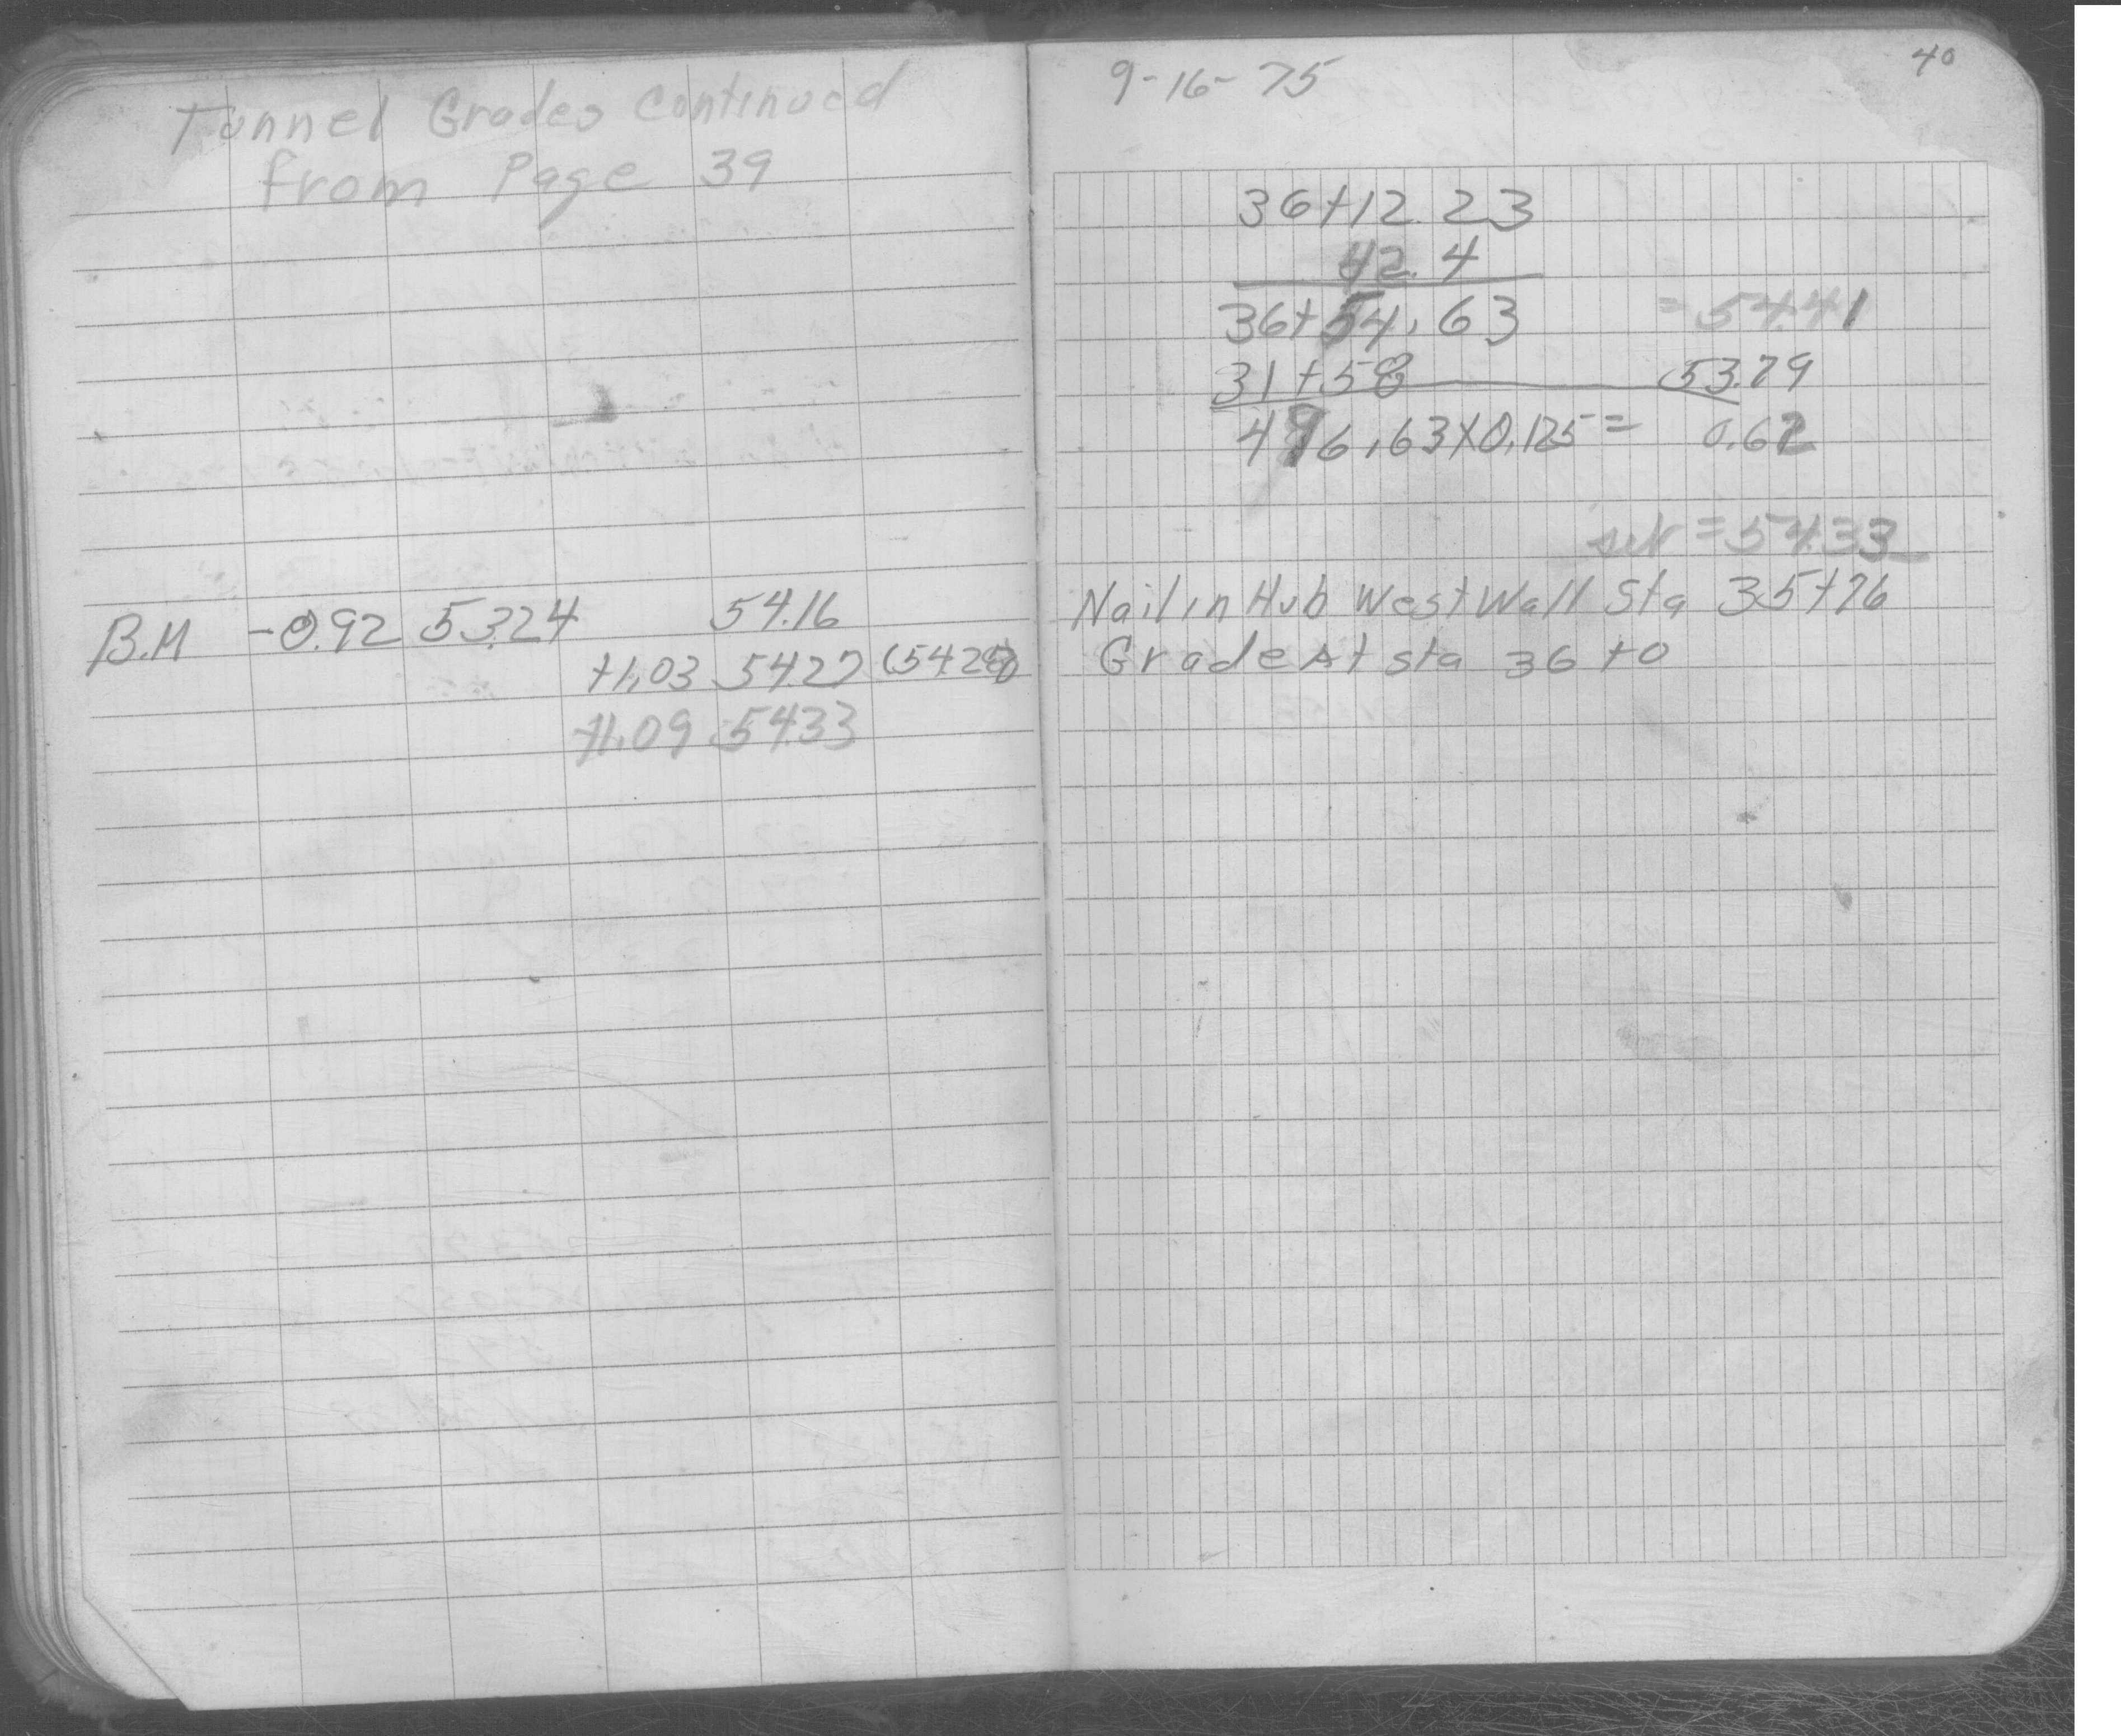 Tunnel Grades Continued
from Page 39
B.M -0.92 53.24 54.16
+1.03 54.27
+1.09 54.33
9-16-75
40
36+12.23
42.4
36+54.63 = 54.41
31+58 53.79
496.63X0.125= 0.62
= 54.33
Nail in Hub West Wall Sta 35+76
Grade At sta 36+0